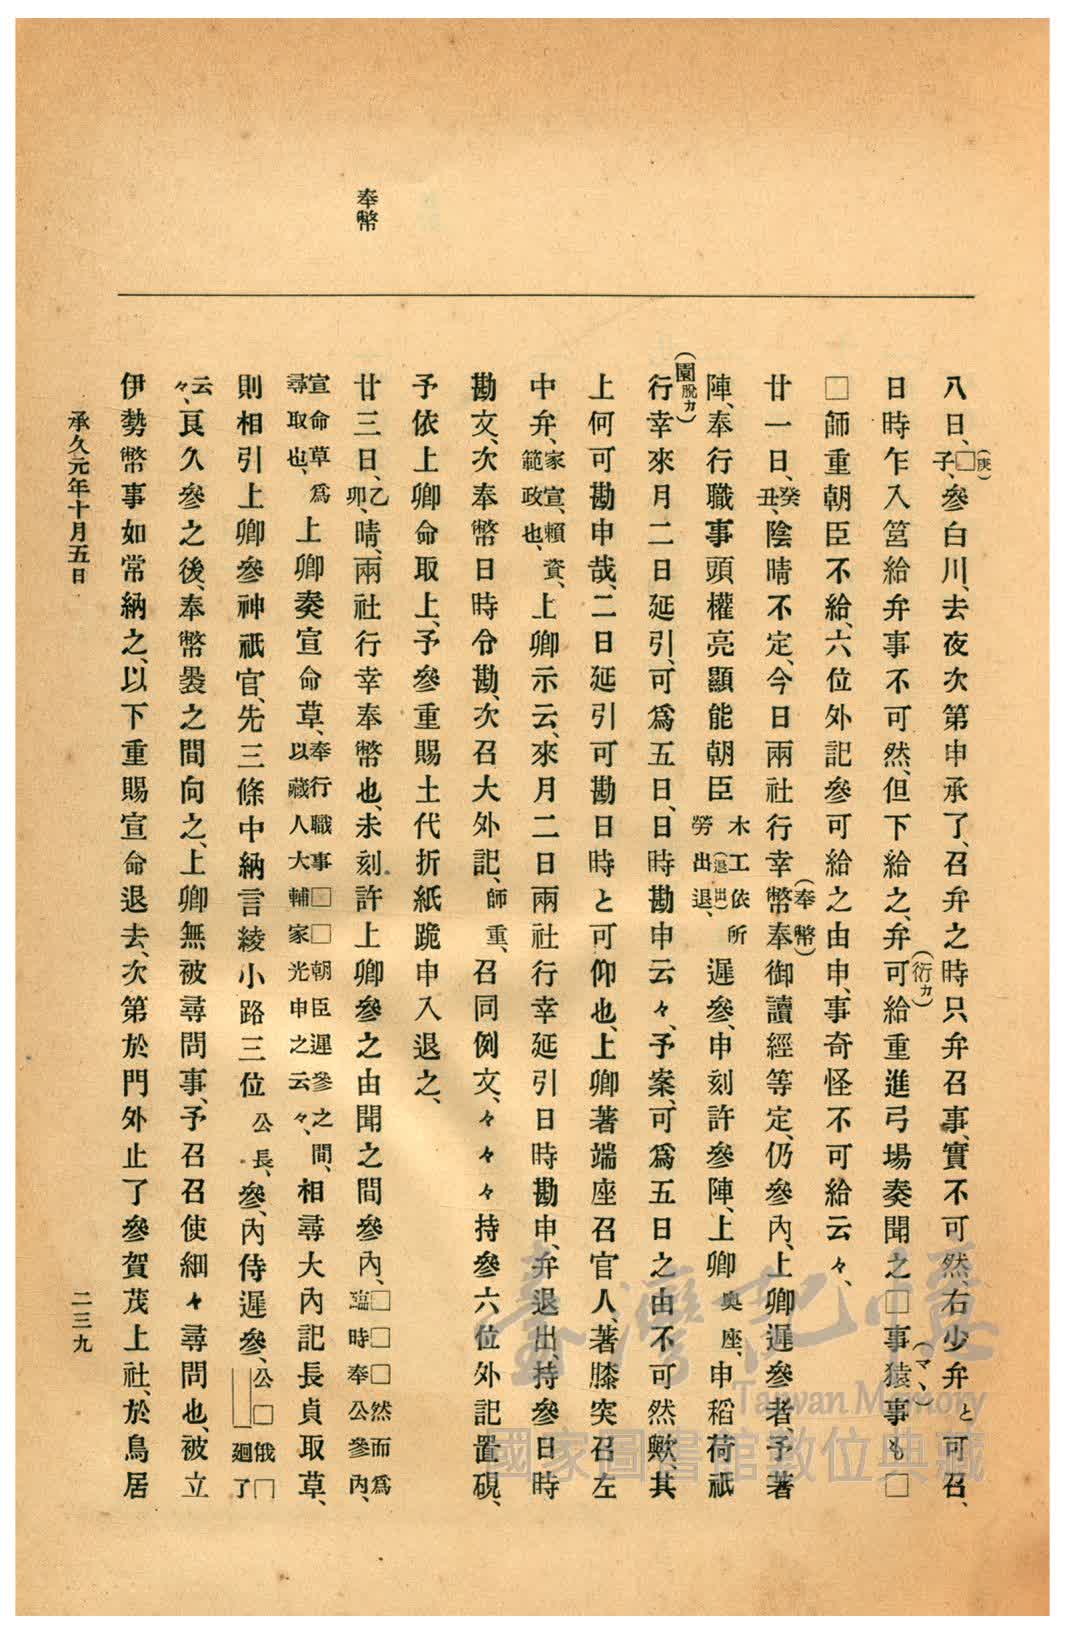 奉幣
八日、(庚)□子、參白川、去夜次第申承了、召弁之時只弁召事、實不可然、右少弁と可召、
日時乍入筥給弁事不可然、但下給之、弁可給(衍カ)重進弓場奏聞之□事猿事も(マヽ)□
□師重朝臣不給、六位外記參可給之由申、事奇怪不可給云々、
廿一日、癸丑、陰晴不定、今日兩社行幸幣奉(奉幣)御讀經等定、仍參內、上卿遲參者、予著
陣、奉行職事頭權亮顯能朝臣木工依所勞出退(退出)、遲參、申刻許參陣、上卿奥座、申稻荷祇
(園脫カ)行幸來月二日延引、可爲五日、日時勘申云々、予案、可爲五日之由不可然歟、其
上何可勘申哉、二日延引可勘日時と可仰也、上卿著端座召官人、著膝突召左
中弁、家宣、賴資、範政也、上卿示云、來月二日兩社行幸延引日時勘申、弁退出、持參日時
勘文、次奉幣日時令勘、次召大外記、師重、召同例文、々々々持參六位外記置硯、
予依上卿命取上、予參重賜土代折紙跪申入退之、
廿三日、乙卯、晴、兩社行幸奉幣也、未刻許上卿參之由聞之間參內、□□□然而爲臨時奉公參內、
宣命草爲尋取也、上卿奏宣命草、奉行職事□□朝臣遲參之間、以藏人大輔家光申之云々、相尋大內記長貞取草、
則相引上卿參神祇官、先三條中納言綾小路三位公長、參、內侍遲參、公□俄□廻了
云々、良久參之後、奉幣裝之間向之、上卿無被尋問事、予召召使細々尋問也、被立
伊勢幣事如常納之、以下重賜宣命退去、次第於門外止了參賀茂上社、於鳥居
承久元年十月五日
二三九
臺灣記憶
Taiwan Memory
國家圖書館數位典藏